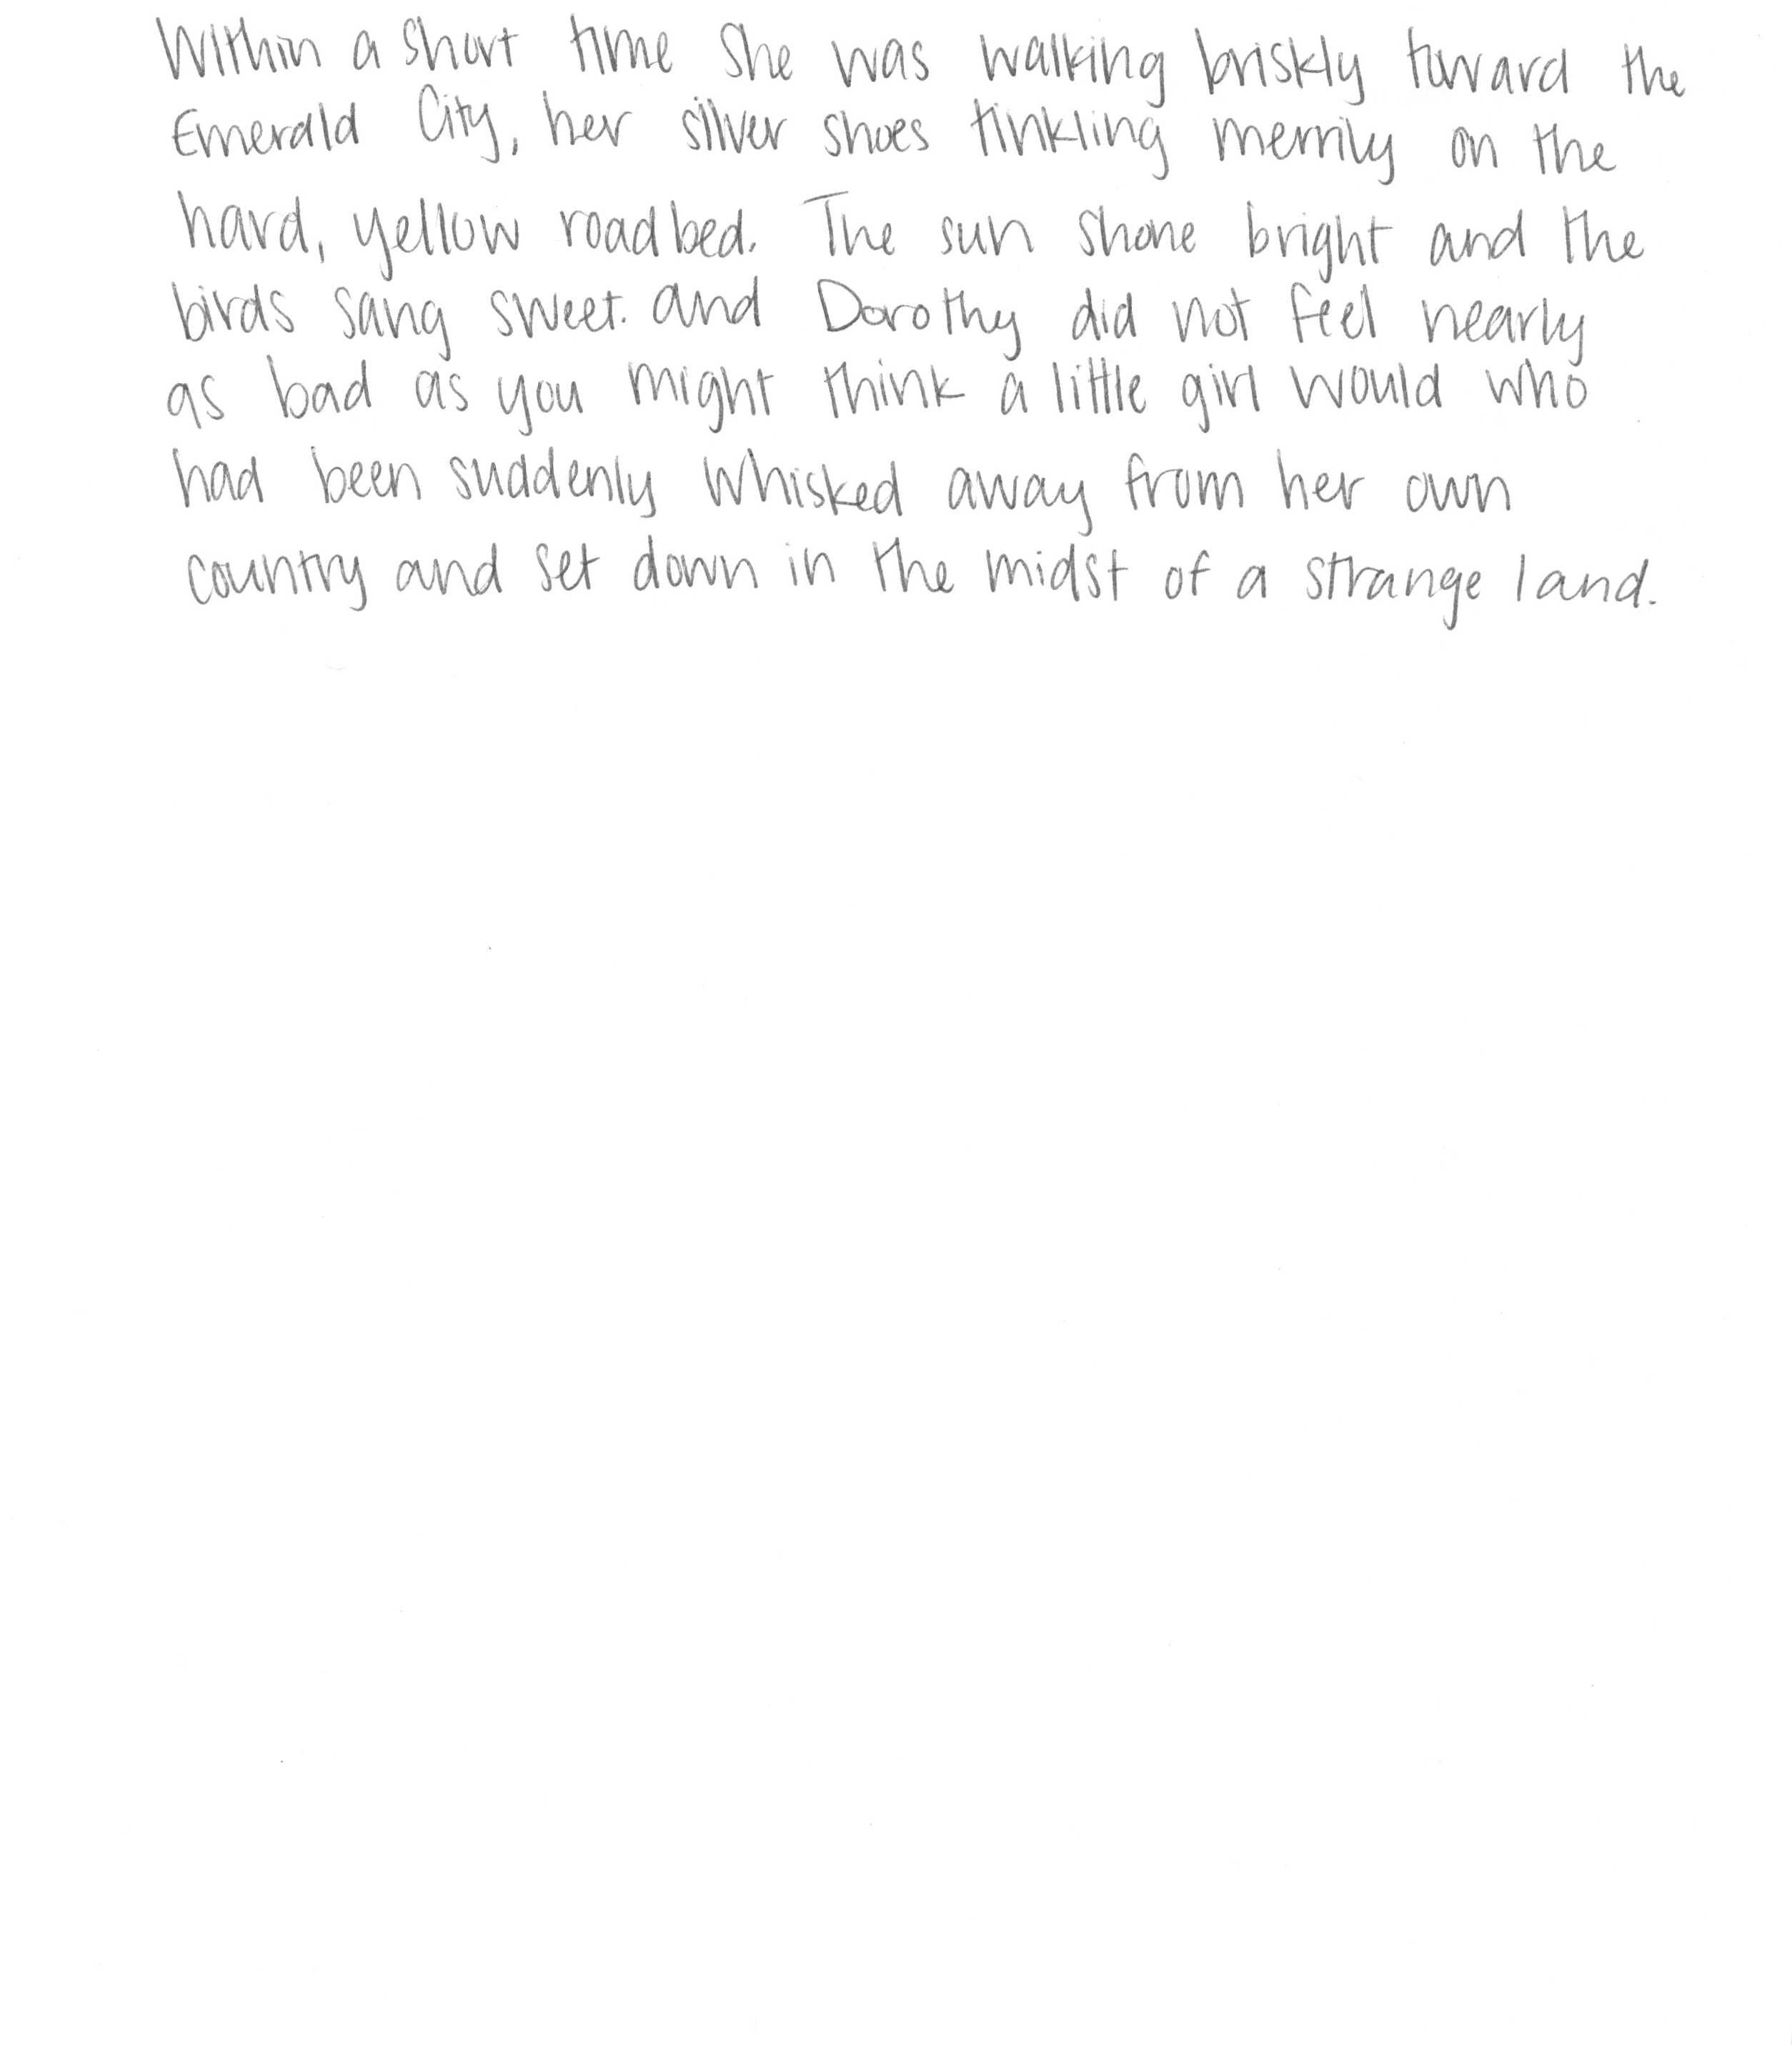 Within a short time she was walking briskly toward the
Emerald City, her silver shoes tinkling merrily on the
hard, yellow roadbed. The sun shone bright and the
birds sang sweet. and Dorothy did not feel nearly
as bad as you might think a little girl would who
had been suddenly whisked away from her own
country and set down in the midst of a strange land.